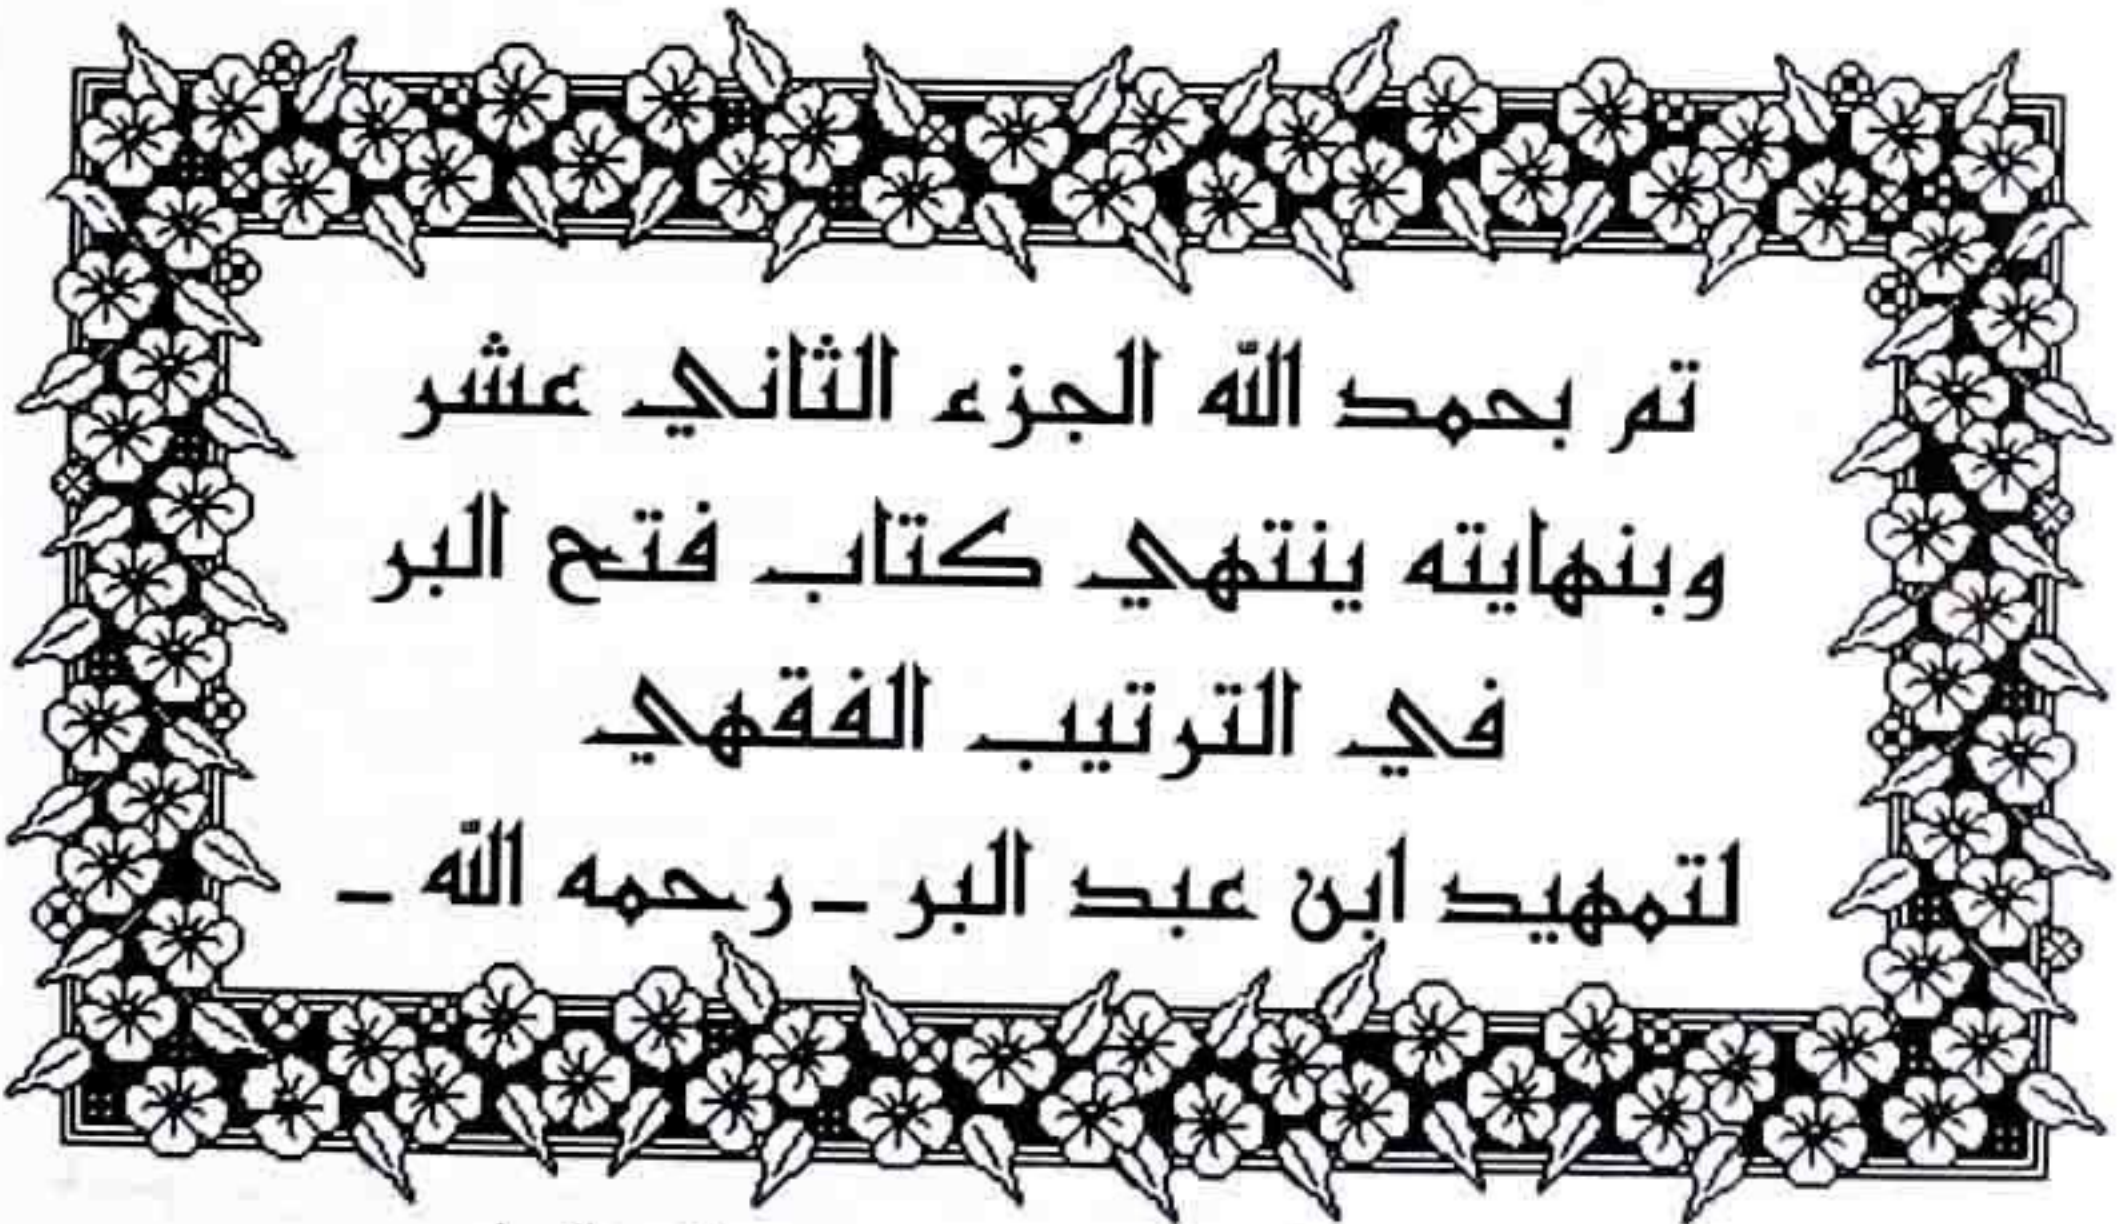 تم بحمد الله الجزء الثاني عشر
وبنهايته ينتهي كتاب فتح البر
في الترتيب الفقهي
لتمهيد ابن عبد البر ـ رحمه الله ـ